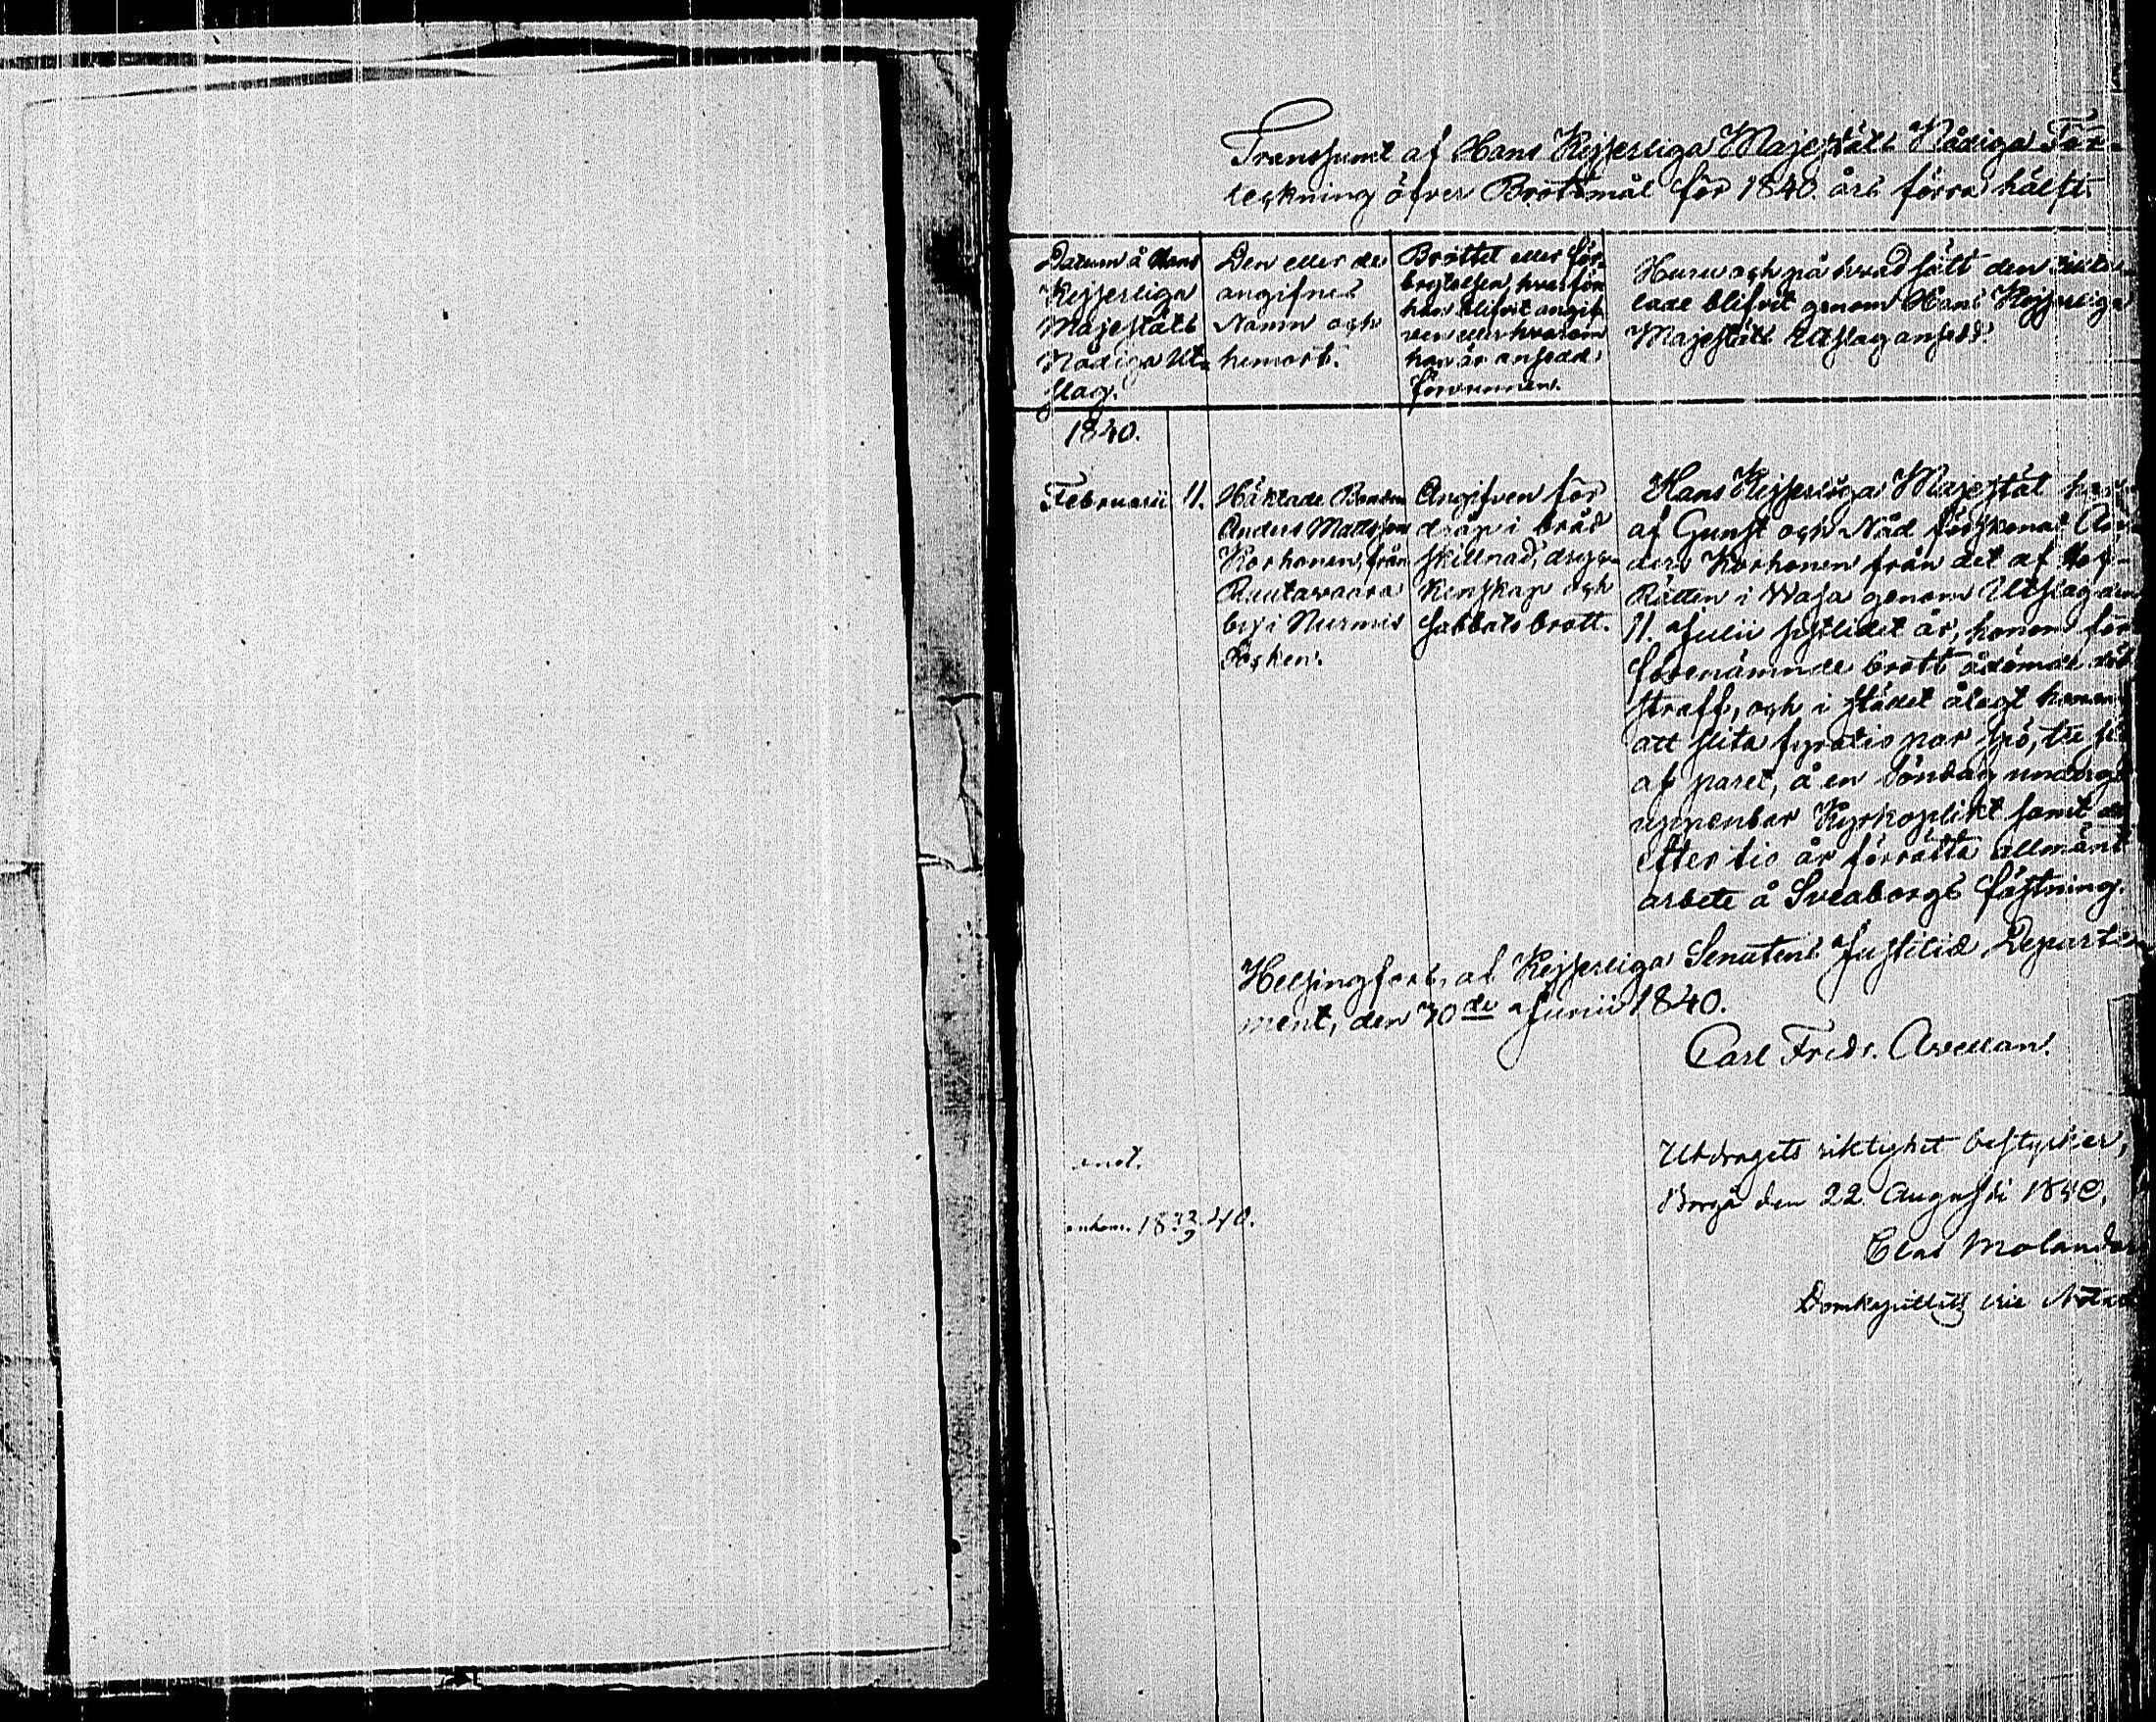 Transsumt af Hans Kejserliga Majestäts Nådiga För-
teckning öfver Brottmål för 1840 års förra hälft.
Datum å Hans
Kejserliga
Majestäts
Nådiga Ut-
slag.
Den eller de
angifnes
Namn och
hemort.
Brottet eller för-
brytelsen, hvarföre
han blifvit angif-
ven eller hvarom
han är ansedd
förvunnen.
Huru och på hvad sätt den
lade blifvit genom Hans Kejserliga
Majestäts Utslag ansedd.
1840.
Februarii 11.
Häktade Bonden
Anders Mattsson
Korhonen, från
Rautavaara
by i Nurmis
Socken.
Angifven för
dråp i bråd
skillnad, dryc-
kenskap och
sabbatsbrott.
Hans Kejserliga Majestät har
af Gunst och Nåd förskonat An-
ders Korhonen från det af Hof-
Rätten i Wasa genom Utslag den
11. Julii sistlidet år, honom för
förenämnde brott ådömde döds
straff, och i stället ålagt honom
att slita fyratio par spö, tre sl
af paret, å en Söndag undergå
uppenbar Kyrkoplikt samt der
efter tio år förrätta allmänt
arbete å Sveaborgs fästning.
Helsingfors, af Kejserliga Senatens Justitiæ Departe-
ment, den 30de Junii 1840.
Carl Fredr. Avellan.
Utdragets riktighet bestyrker,
Borgå den 22 Augusti 1840,
Clas Molander
Domkapitlets vice Nota